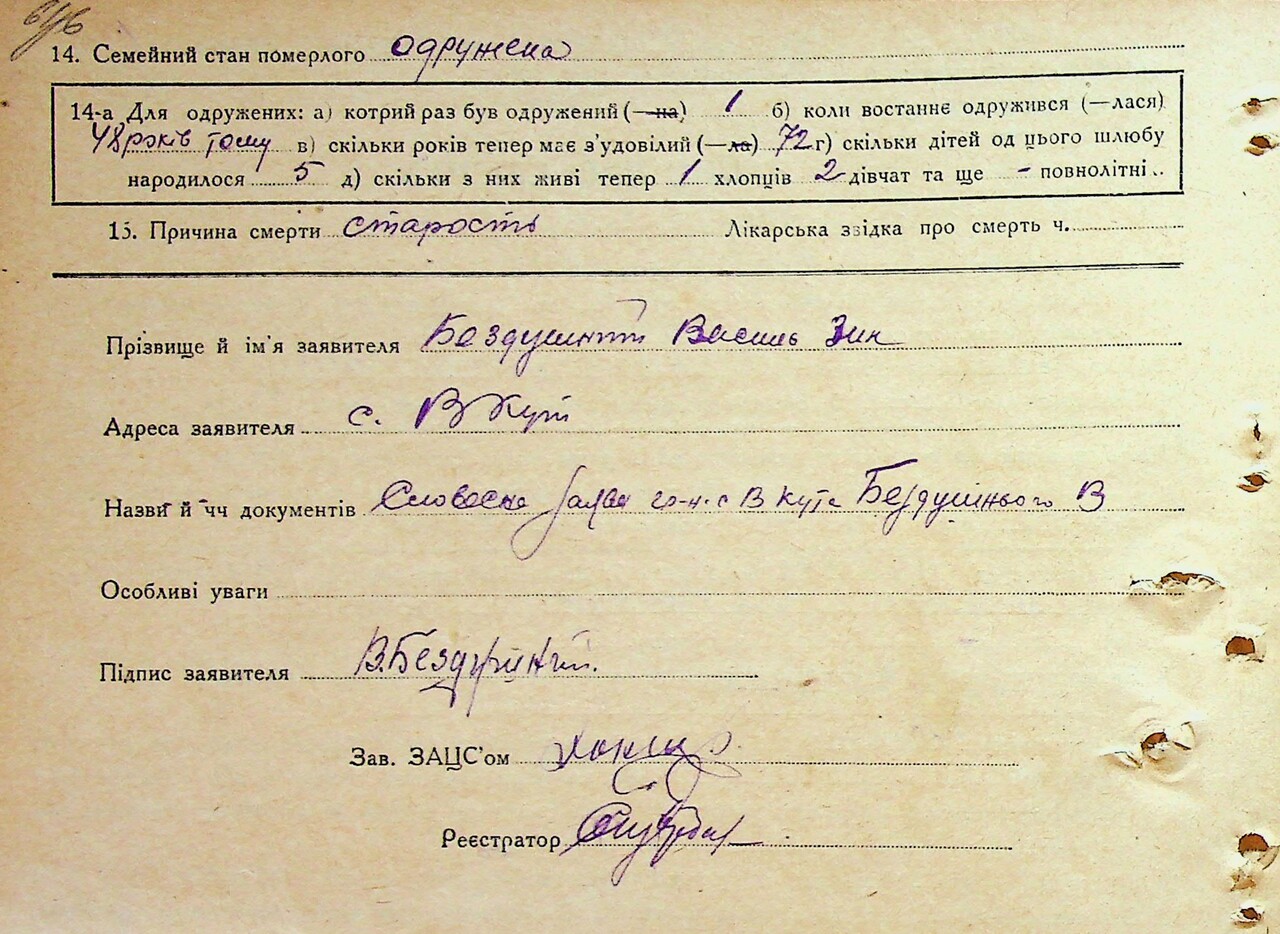 14. Семейний стан померлого одружена
14-а Для одружених: а) котрий раз був одружений (—на) 1 б) коли востаннє одружився (—лася)
48 років тому в) скільки років тепер має з'удовілий (—ла) 72 г) скільки дітей од цього шлюбу
народилося 5 д) скільки з них живі тепер 1 хлопців 2 дівчат та ще - повнолітні..
15. Причина смерти старость Лікарська звідка про смерть ч.
Прізвище й ім'я заявителя Бездушний Василь Зин
Адреса заявителя с. В Кут
Назви й чч документів Словесна заява гр-н. с В Кута Бездушнього В
Особливі уваги
Підпис заявителя В. Бездушний.
Зав. ЗАЦС'ом
Реєстратор